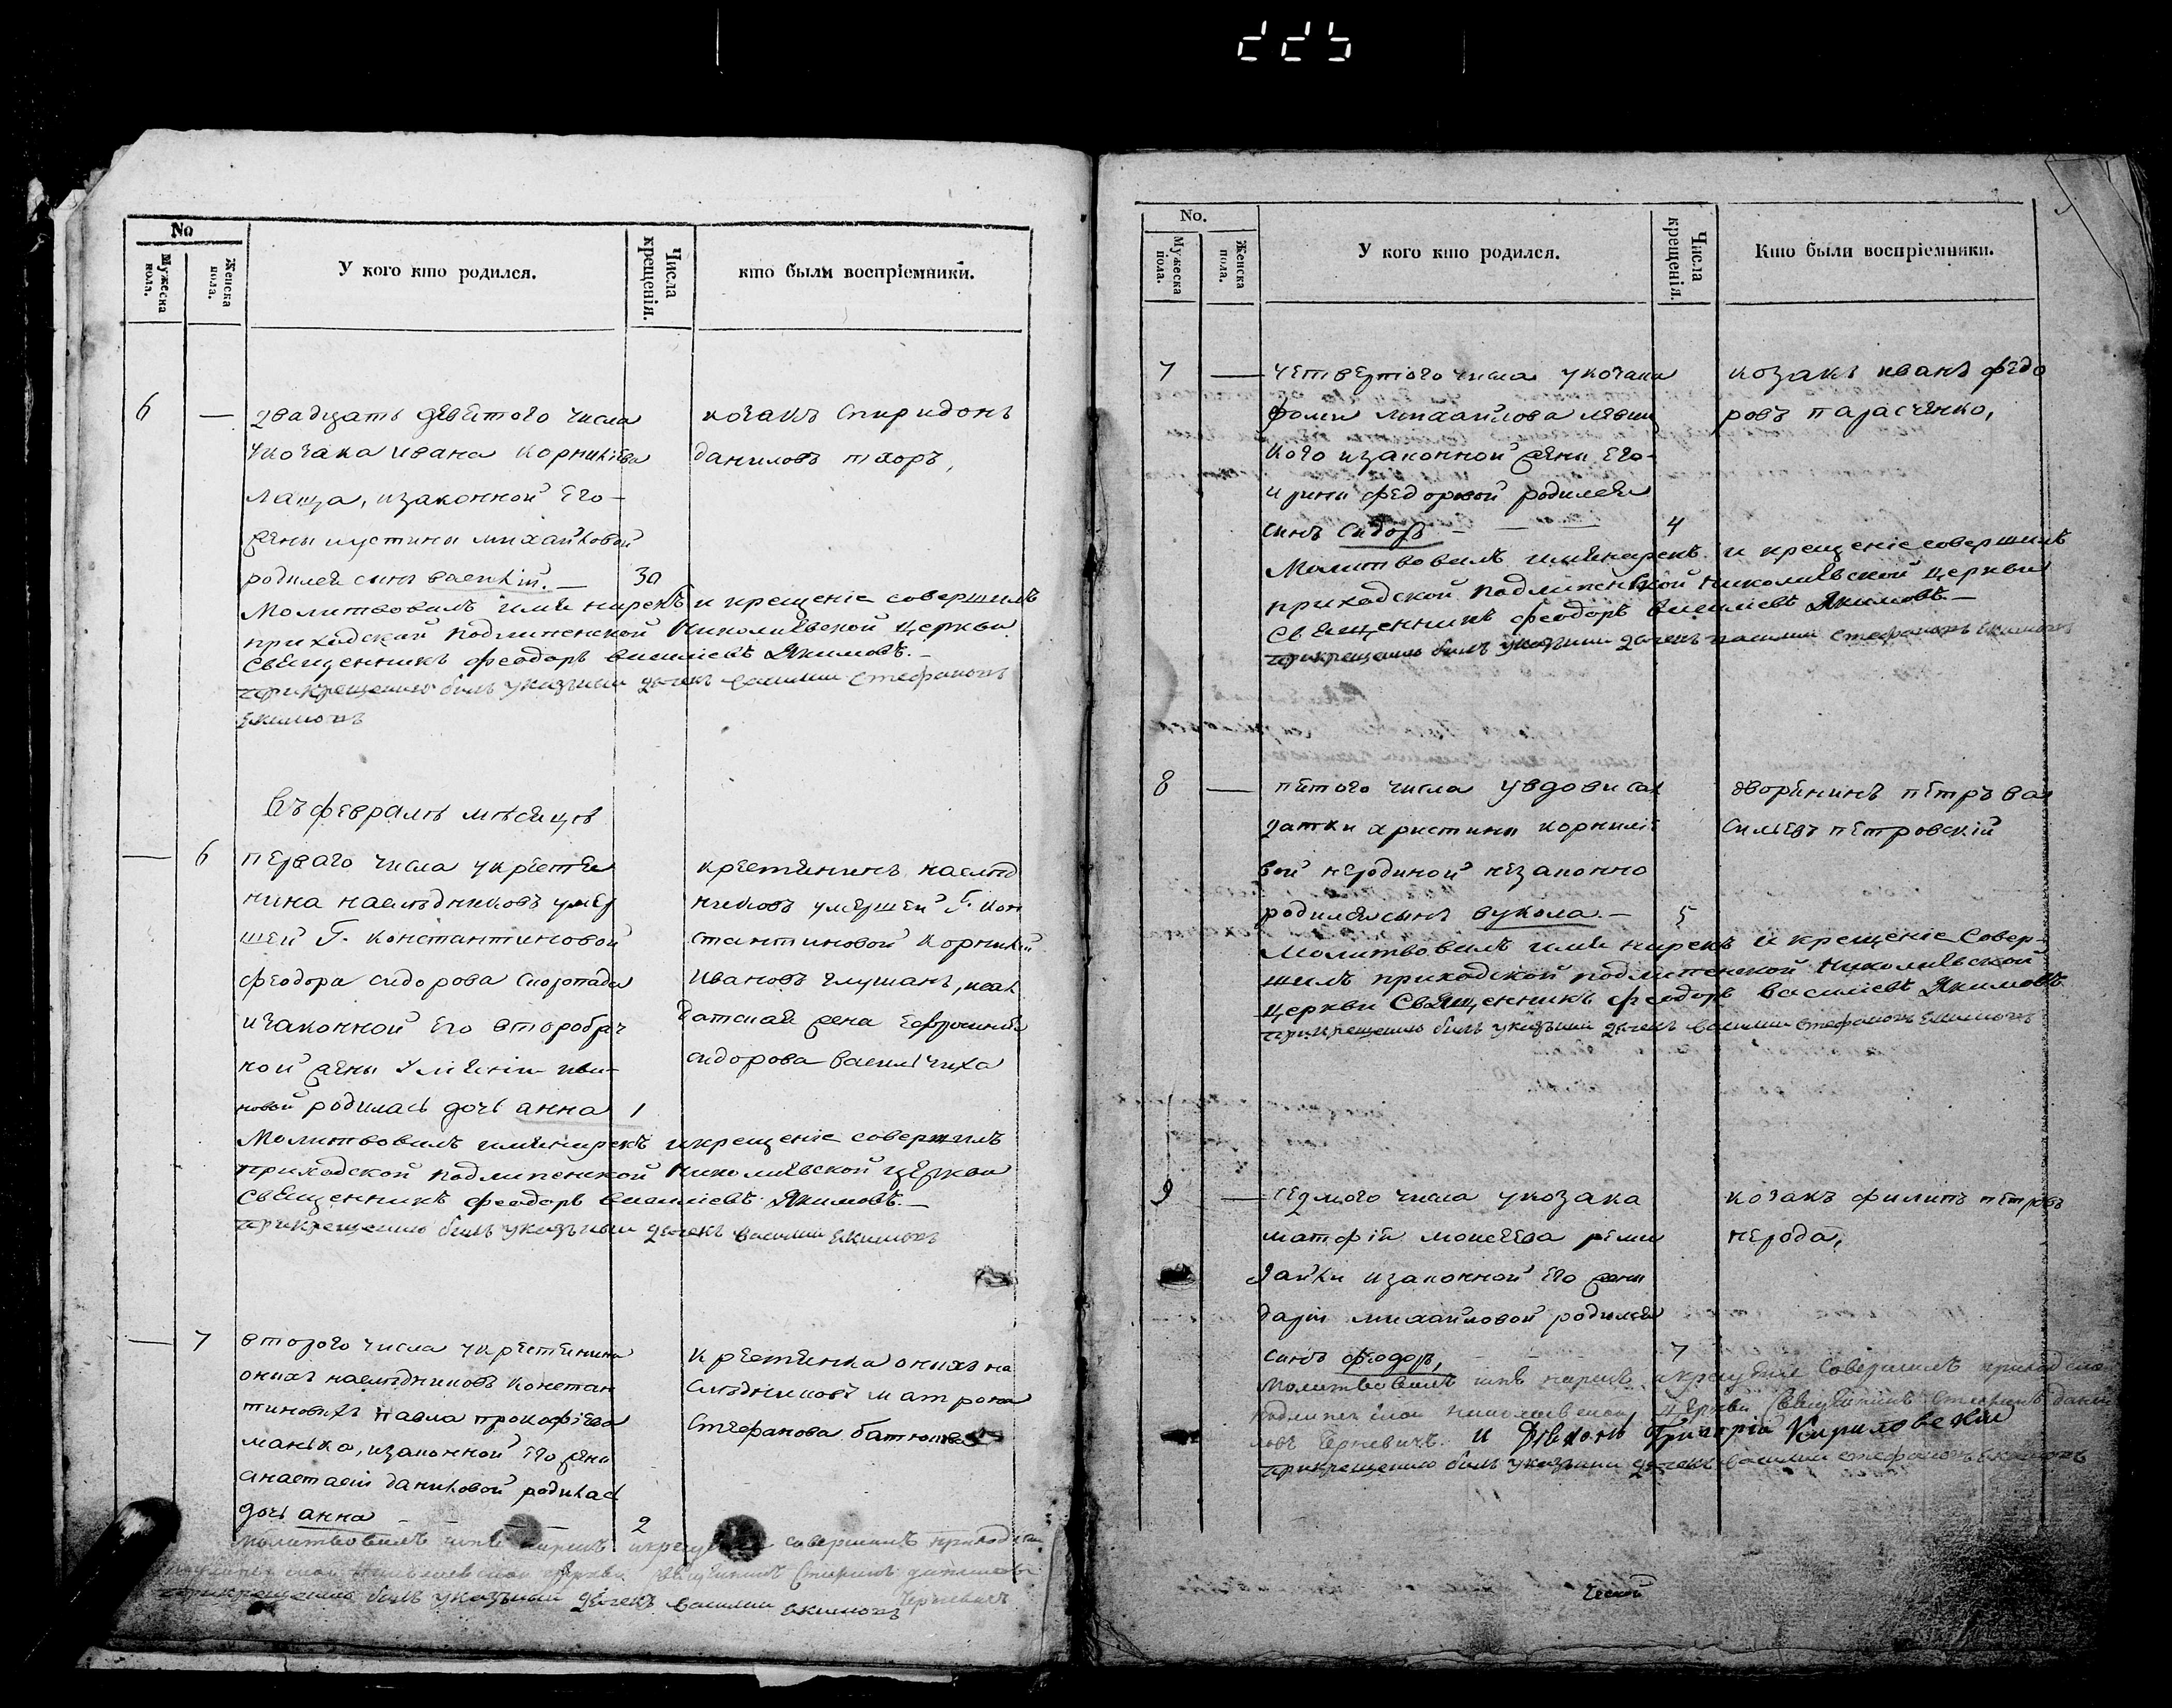 No
Мужеска пола.
Женска пола.
У кого кто родился.
Числа крещенія.
кто были воспріемники.
6 — двадцать девѣтого числа
укозака ивана корнилѣва
лаща, изаконной Его —
жены иустины михайловой
родился сынъ василій. — 30
козакъ спиридонъ
даниловъ тхоръ,
Молитвовалъ имя нарекъ и крещеніе совершилъ
приходской подлипенской Николаѣвской церкви
Священникъ феодоръ Василіевъ Якимовъ. —
прикрещении былъ указный дьячекъ василий Стефановъ
Екимовъ
Въ февралѣ мѣсяцѣ
— 6 перваго числа укрестья
нина наслѣдниковъ умер
шей Г. константиновой
феодора сидорова скоропада
изаконной его второбрач
ной жены
новой родилась дочь анна 1
крестьянинъ наслѣд
никовъ умершей Г. кон
стантиновой корнилій
ивановъ глушакъ,
датская жена
сидорова василічиха
Молитвовалъ имя нарекъ и крещеніе совершилъ
приходской подлипенской Николаѣвской церкви
Священникъ феодоръ Василіевъ Якимовъ. —
прикрещении былъ указный дьячекъ василий Екимовъ
— 7 второго числа укрестьянина
онихъ наслѣдниковъ констан
тиновыхъ павла прокофіева
манька, изаконной его жены
анастасіи даниловой родилась
дочь анна — — 2
крестьянка онихъ на
слѣдниковъ матрона
Стефанова
Молитвовалъ имя нарекъ и крещеніе совершилъ приходской
подлипенской Николаевской церкви священникъ Стефанъ даниловъ
Черневичъ
прикрещении былъ указный дьячекъ василий Екимовъ
No.
Мужеска пола.
Женска пола.
У кого кто родился.
Числа крещенія.
Кто были воспріемники.
7 — четвертого числа укозака
фомы михайлова левиц
кого изаконной жены его —
ирины федоровой родился
сынъ Сидоръ — — 4
козакъ иванъ федо
ровъ парасченко,
Молитвовалъ имя нарекъ и крещеніе совершилъ
приходской подлипенской Николаѣвской церкви
Священникъ феодоръ Василіевъ Якимовъ —
прикрещении былъ указный дьячекъ василий Стефановъ Екимовъ
8 — пятого числа увдови сол
датки христины корниліе
вой неродиной незаконно
родился сынъ вукола. — 5
дворянинъ петръ ва
сильевъ петровскій
Молитвовалъ имя нарекъ и крещеніе Совер-
шилъ приходской подлипенской Николаѣвской
церкви Священникъ феодоръ Василіевъ Якимовъ
прикрещении былъ указный дьячекъ василий Стефановъ Екимовъ
9 — седмого числа укозака
матфія моисеева реми
зайки изаконной его жены
даріи михайловой родился
сынъ феодоръ, — — 7
козакъ филипъ петровъ
нерода,
Молитвовалъ имя нарекъ и крещеніе Совершилъ приходской
подлипенской николаевской церкви Священникъ Стефанъ дани
ловъ Черневичъ и Дьяконъ Григорій Кириловскій
прикрещении былъ указный дьячекъ василий стефановъ Екимовъ